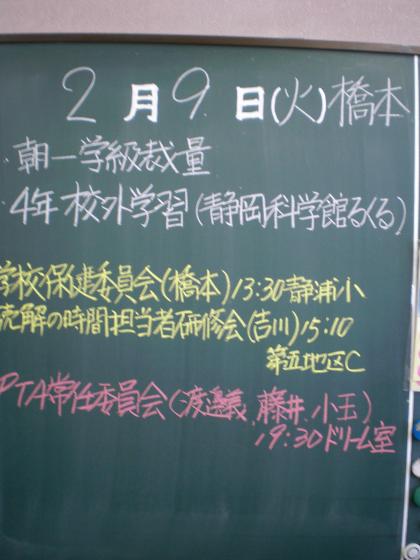 2月9日(火)橋本
・朝一学級裁量
4年校外学習(静岡科学館るくる)
学校保健委員会(橋本)13:30静浦小
読解の時間担当者研修会(吉川)15:10
第五地区C
PTA常任委員会(渡邉義、藤井、小玉)
19:30ドリーム室